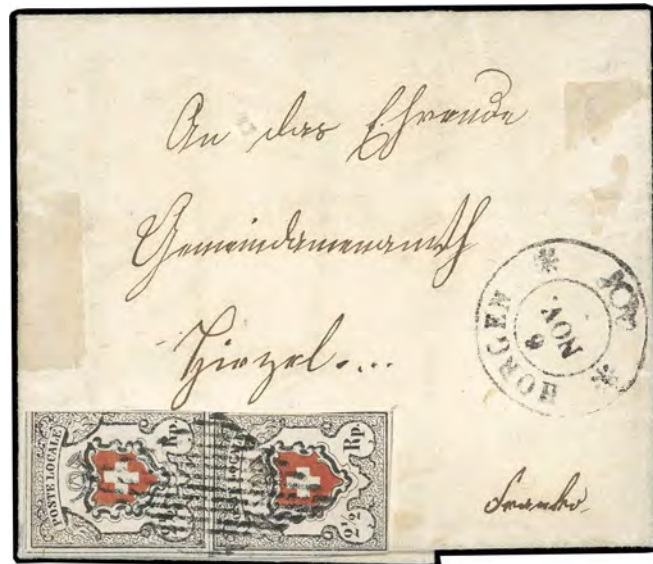 An das Ehrende
Gemeindammanamth
Hirzel....
HORGEN
6
NOV.
POSTE LOCALE
2½ Rp.
POSTE LOCALE
2½ Rp.
Franko.